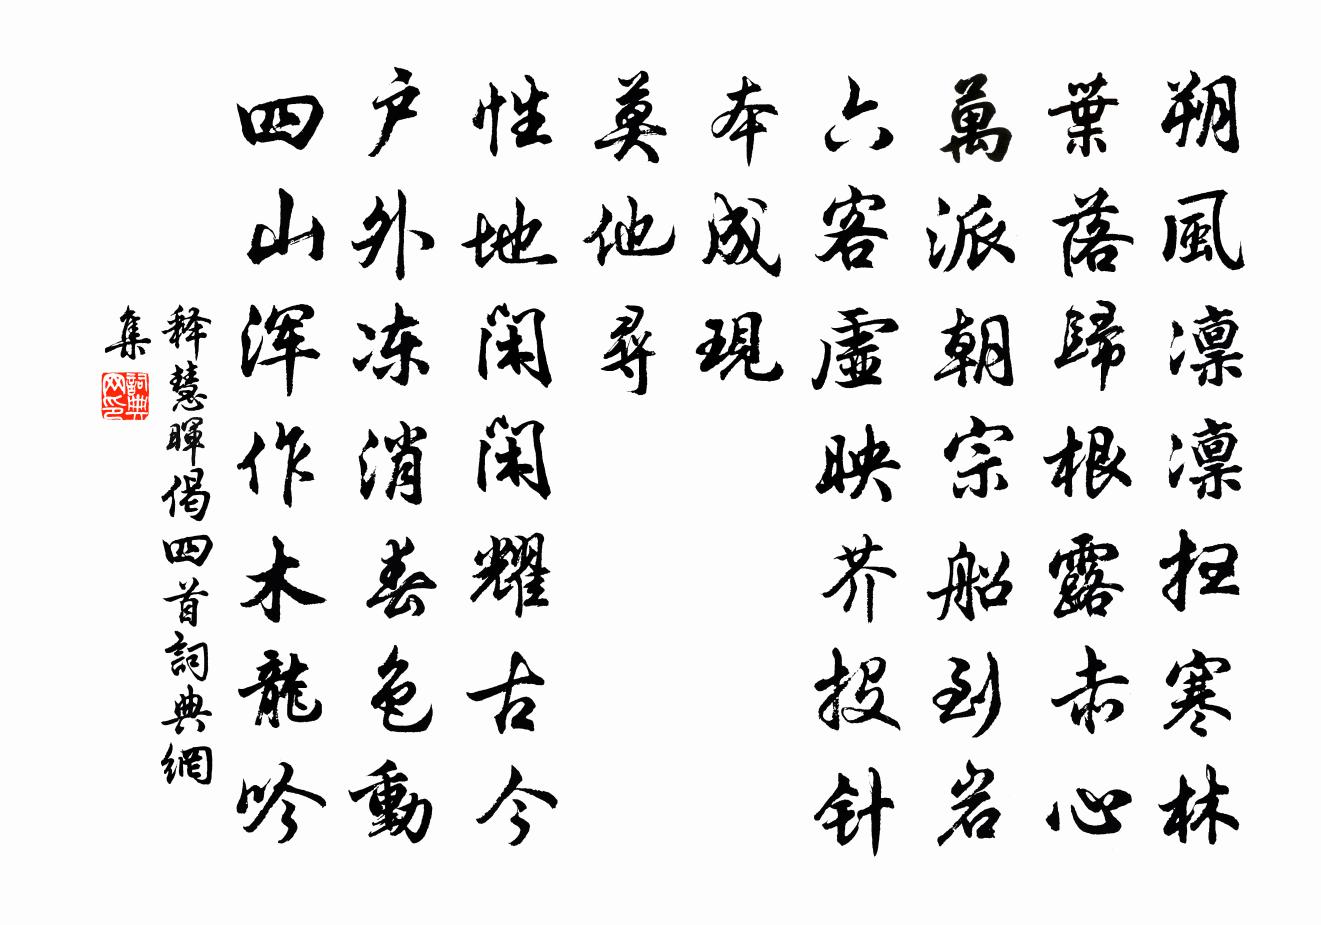 朔風凛凛扫寒林
葉落歸根露赤心
萬派朝宗船到岩
六客虛映芥投针
本成現
莫他尋
性地闲闲耀古今
户外冻消春色動
四山浑作木龍吟
释慧暉偈四首詞典網
集
詞典
网印